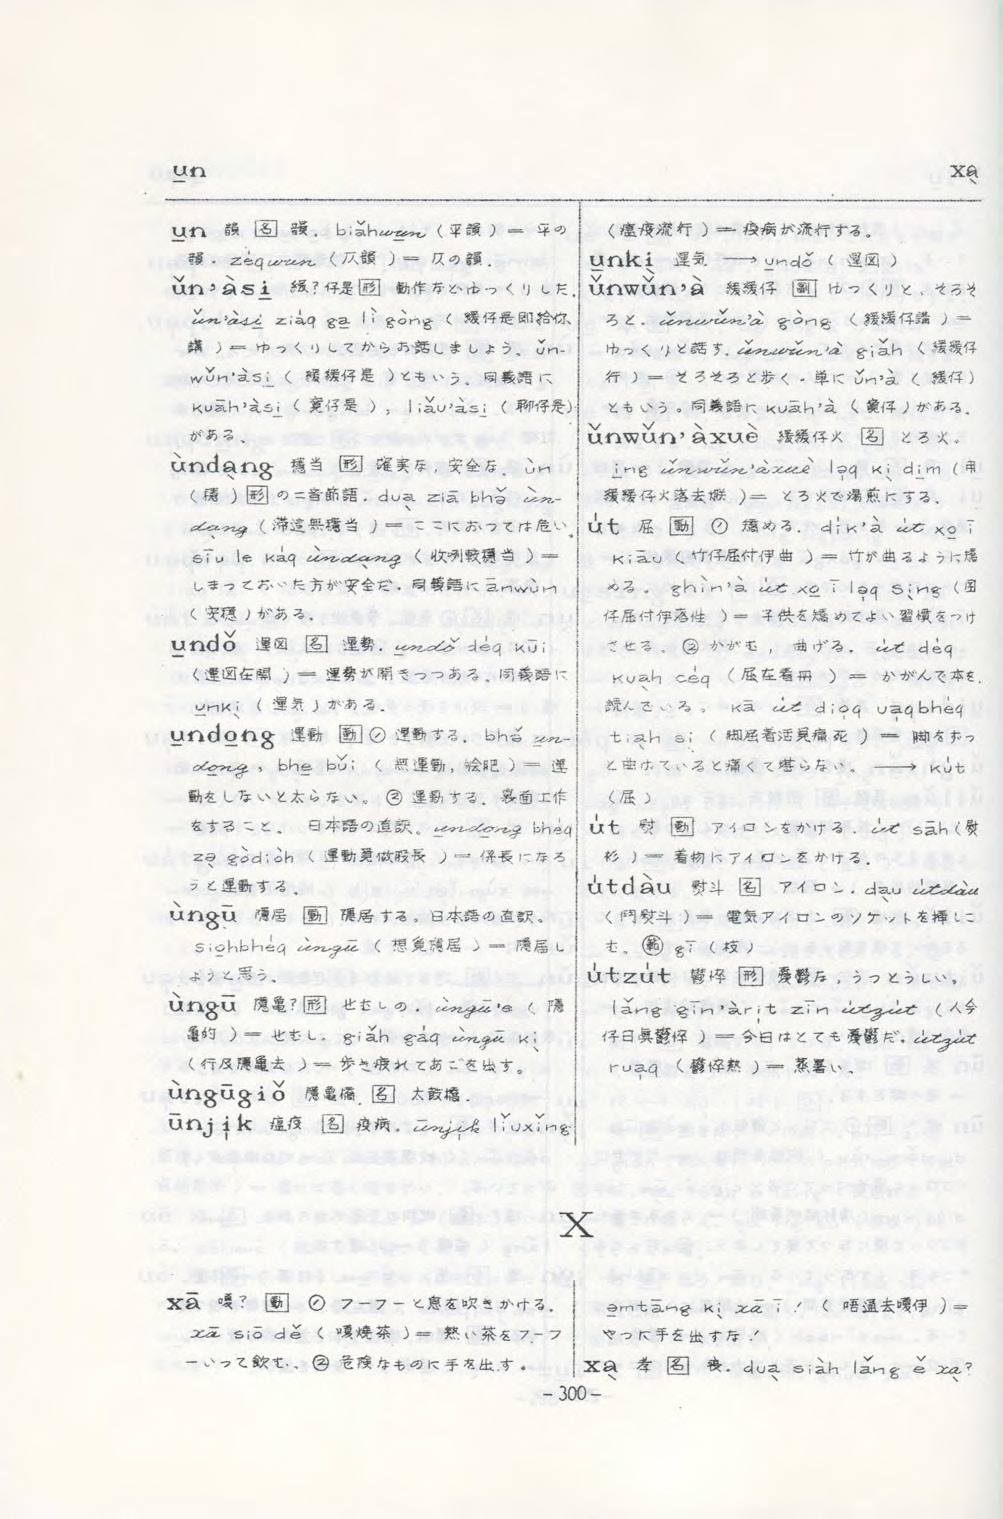 u̱n
xa̱
u̱n 韻 名 韻. biǎhwu̱n (平韻) = 平の
韻. zéqwu̱n (仄韻) = 仄の韻.
ǔn'àsi̱ 緩?仔是 形 動作などゆっくりした.
ǔn'àsi̱ ziáq ga̱ lì gòng (緩仔是即給你
講) = ゆっくりしてからお話しましょう. ǔn-
wǔn'àsi̱ (緩緩仔是) ともいう. 同義語に
kuāh'àsi̱ (寛仔是), liāu'àsi̱ (聊仔是)
がある.
ùnda̱ng 穏当 形 確実な, 安全な. ùn
(穏) 形 の二音節語. dua̱ ziā bhǒ ùn-
da̱ng (滞這無穏当) = ここにおっては危い.
sīu le káq ùnda̱ng (收咧較穏当) =
しまっておいた方が安全だ. 同義語に ānwùn
(安穏) がある.
u̱ndǒ 運図 名 運勢. u̱ndǒ déq kūi
(運図在開) = 運勢が開きつつある. 同義語に
u̱nki̱ (運気) がある.
u̱ndo̱ng 運動 動 ① 運動する. bhǒ u̱n-
do̱ng, bhe̱ būi (無運動, 𣍐肥) = 運
動をしないと太らない. ② 運動する. 裏面工作
をすること. 日本語の直訳. u̱ndo̱ng bhéq
zo̱ gòdiòh (運動覓做股長) = 係長になろ
うと運動する.
ùngū 隠居 動 隠居する. 日本語の直訳.
sio̱hbhéq ùngū (想覓隠居) = 隠居し
ようと思う.
ùngū 隠亀? 形 せむしの. ùngū'e (隠
亀的) = せむし. giǎh gáq ùngū ki̱
(行及隠亀去) = 歩き疲れてあごを出す.
ùngūgiǒ 隠亀橋 名 太鼓橋.
ūnji̍k 瘟疫 名 疫病. ūnji̍k lǐuxǐng
(瘟疫流行) = 疫病が流行する.
u̱nki̱ 運気 → u̱ndǒ (運図)
ǔnwǔn'à 緩緩仔 副 ゆっくりと, そろそ
ろと. ǔnwǔn'à gòng (緩緩仔講) =
ゆっくりと話す. ǔnwǔn'à giǎh (緩緩仔
行) = そろそろと歩く. 単に ǔn'à (緩仔)
ともいう. 同義語に kuāh'à (寛仔) がある.
ǔnwǔn'àxuè 緩緩仔火 名 とろ火.
i̱ng ǔnwǔn'àxuè lo̍q ki̱ di̱m (用
緩緩仔火落去燖) = とろ火で湯煎にする.
út 屈 動 ① 矯める. dík'à út xo̱ ī
kiāu (竹仔屈付伊曲) = 竹が曲るように矯
める. ghìn'à út xo̱ ī lo̍q si̱ng (囝
仔屈付伊落性) = 子供を矯めてよい習慣をつけ
させる. ② かがむ, 曲げる. út déq
kua̱h céq (屈在看冊) = かがんで本を
読んでいる. kā út dio̍q ua̍qbhéq
tia̱h sì (脚屈着活覓痛死) = 脚をおっ
と曲げていると痛くて堪らない. → kút
(屈)
út 熨 動 アイロンをかける. út sāh (熨
衫) = 着物にアイロンをかける.
útdàu 熨斗 名 アイロン. da̱u útdàu
(鬥熨斗) = 電気アイロンのソケットを挿しこ
む. 範 gī (枝)
útzút 鬱悴 形 憂鬱な, うっとうしい.
lǎng gīn'àri̍t zīn útzút (人今
仔日眞鬱悴) = 今日はとても憂鬱だ. útzút
rua̍q (鬱悴熱) = 蒸暑い.
X
xā 嗄? 動 ① フーフーと息を吹きかける.
xā siō dě (嗄焼茶) = 熱い茶をフーフ
ーいって飲む. ② 危険なものに手を出す.
a̱mtāng ki̱ xā ī! (唔通去嗄伊) =
やつに手を出すな!
xa̱ 孝 名 喪. dua̱ siàh lǎng ě xa̱?
- 300 -